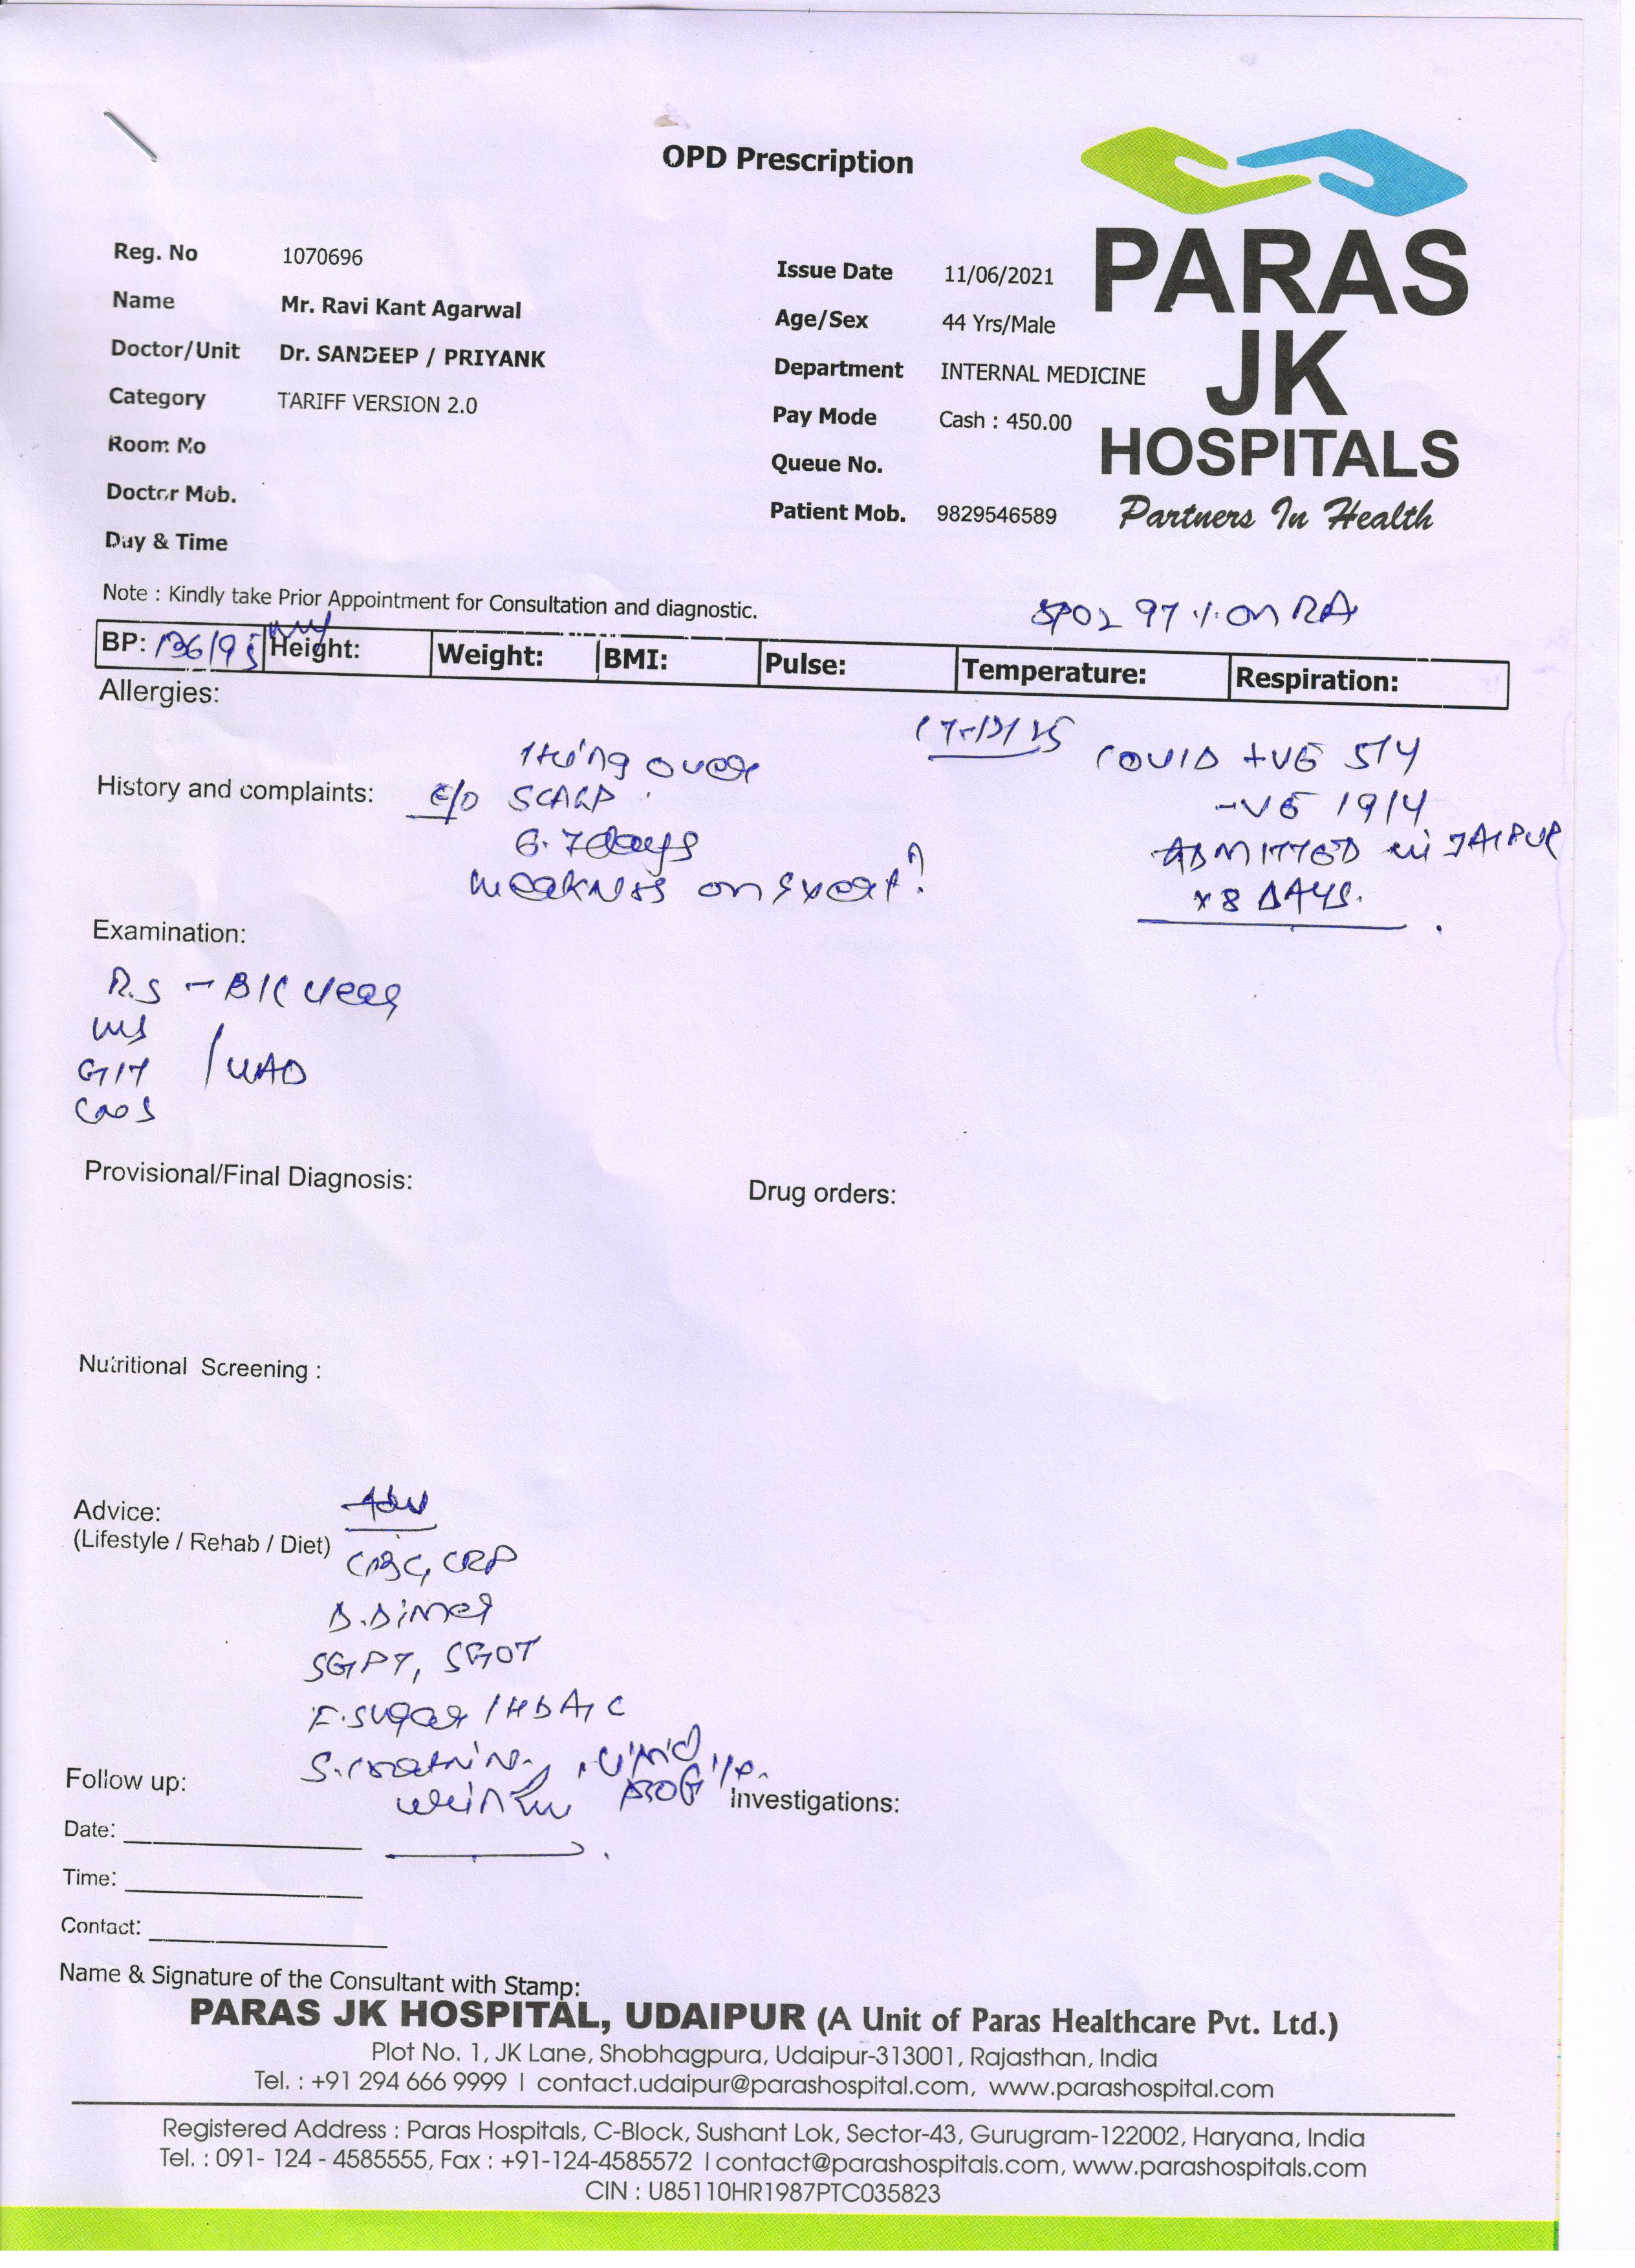 OPD Prescription
PARAS
JK
HOSPITALS
Partners In Health
Reg. No 1070696
Name Mr. Ravi Kant Agarwal
Doctor/Unit Dr. SANDEEP / PRIYANK
Category TARIFF VERSION 2.0
Room No
Doctor Mob.
Day & Time
Issue Date 11/06/2021
Age/Sex 44 Yrs/Male
Department INTERNAL MEDICINE
Pay Mode Cash : 450.00
Queue No.
Patient Mob. 9829546589
Note : Kindly take Prior Appointment for Consultation and diagnostic.
SPO2 97 % on RA
BP: 136/95 Height: Weight: BMI: Pulse: Temperature: Respiration:
Allergies:
COVID +VE 5/4
-VE 19/4
ADMITTED in JAIPUR
x 8 DAYS.
History and complaints: C/O
over
SCALP
6-7 days
weakness on exert
Examination:
R.S - B/L clear
GIT / NAD
CNS
Provisional/Final Diagnosis:
Drug orders:
Nutritional Screening :
Advice:
(Lifestyle / Rehab / Diet)
Adv
CBC, CRP
D.Dimer
SGPT, SGOT
F.sugar / HbA1C
S.creatinine,
Follow up:
Investigations:
Date:
Time:
Contact:
Name & Signature of the Consultant with Stamp:
PARAS JK HOSPITAL, UDAIPUR (A Unit of Paras Healthcare Pvt. Ltd.)
Plot No. 1, JK Lane, Shobhagpura, Udaipur-313001, Rajasthan, India
Tel. : +91 294 666 9999 | contact.udaipur@parashospital.com, www.parashospital.com
Registered Address : Paras Hospitals, C-Block, Sushant Lok, Sector-43, Gurugram-122002, Haryana, India
Tel. : 091- 124 - 4585555, Fax : +91-124-4585572 | contact@parashospitals.com, www.parashospitals.com
CIN : U85110HR1987PTC035823